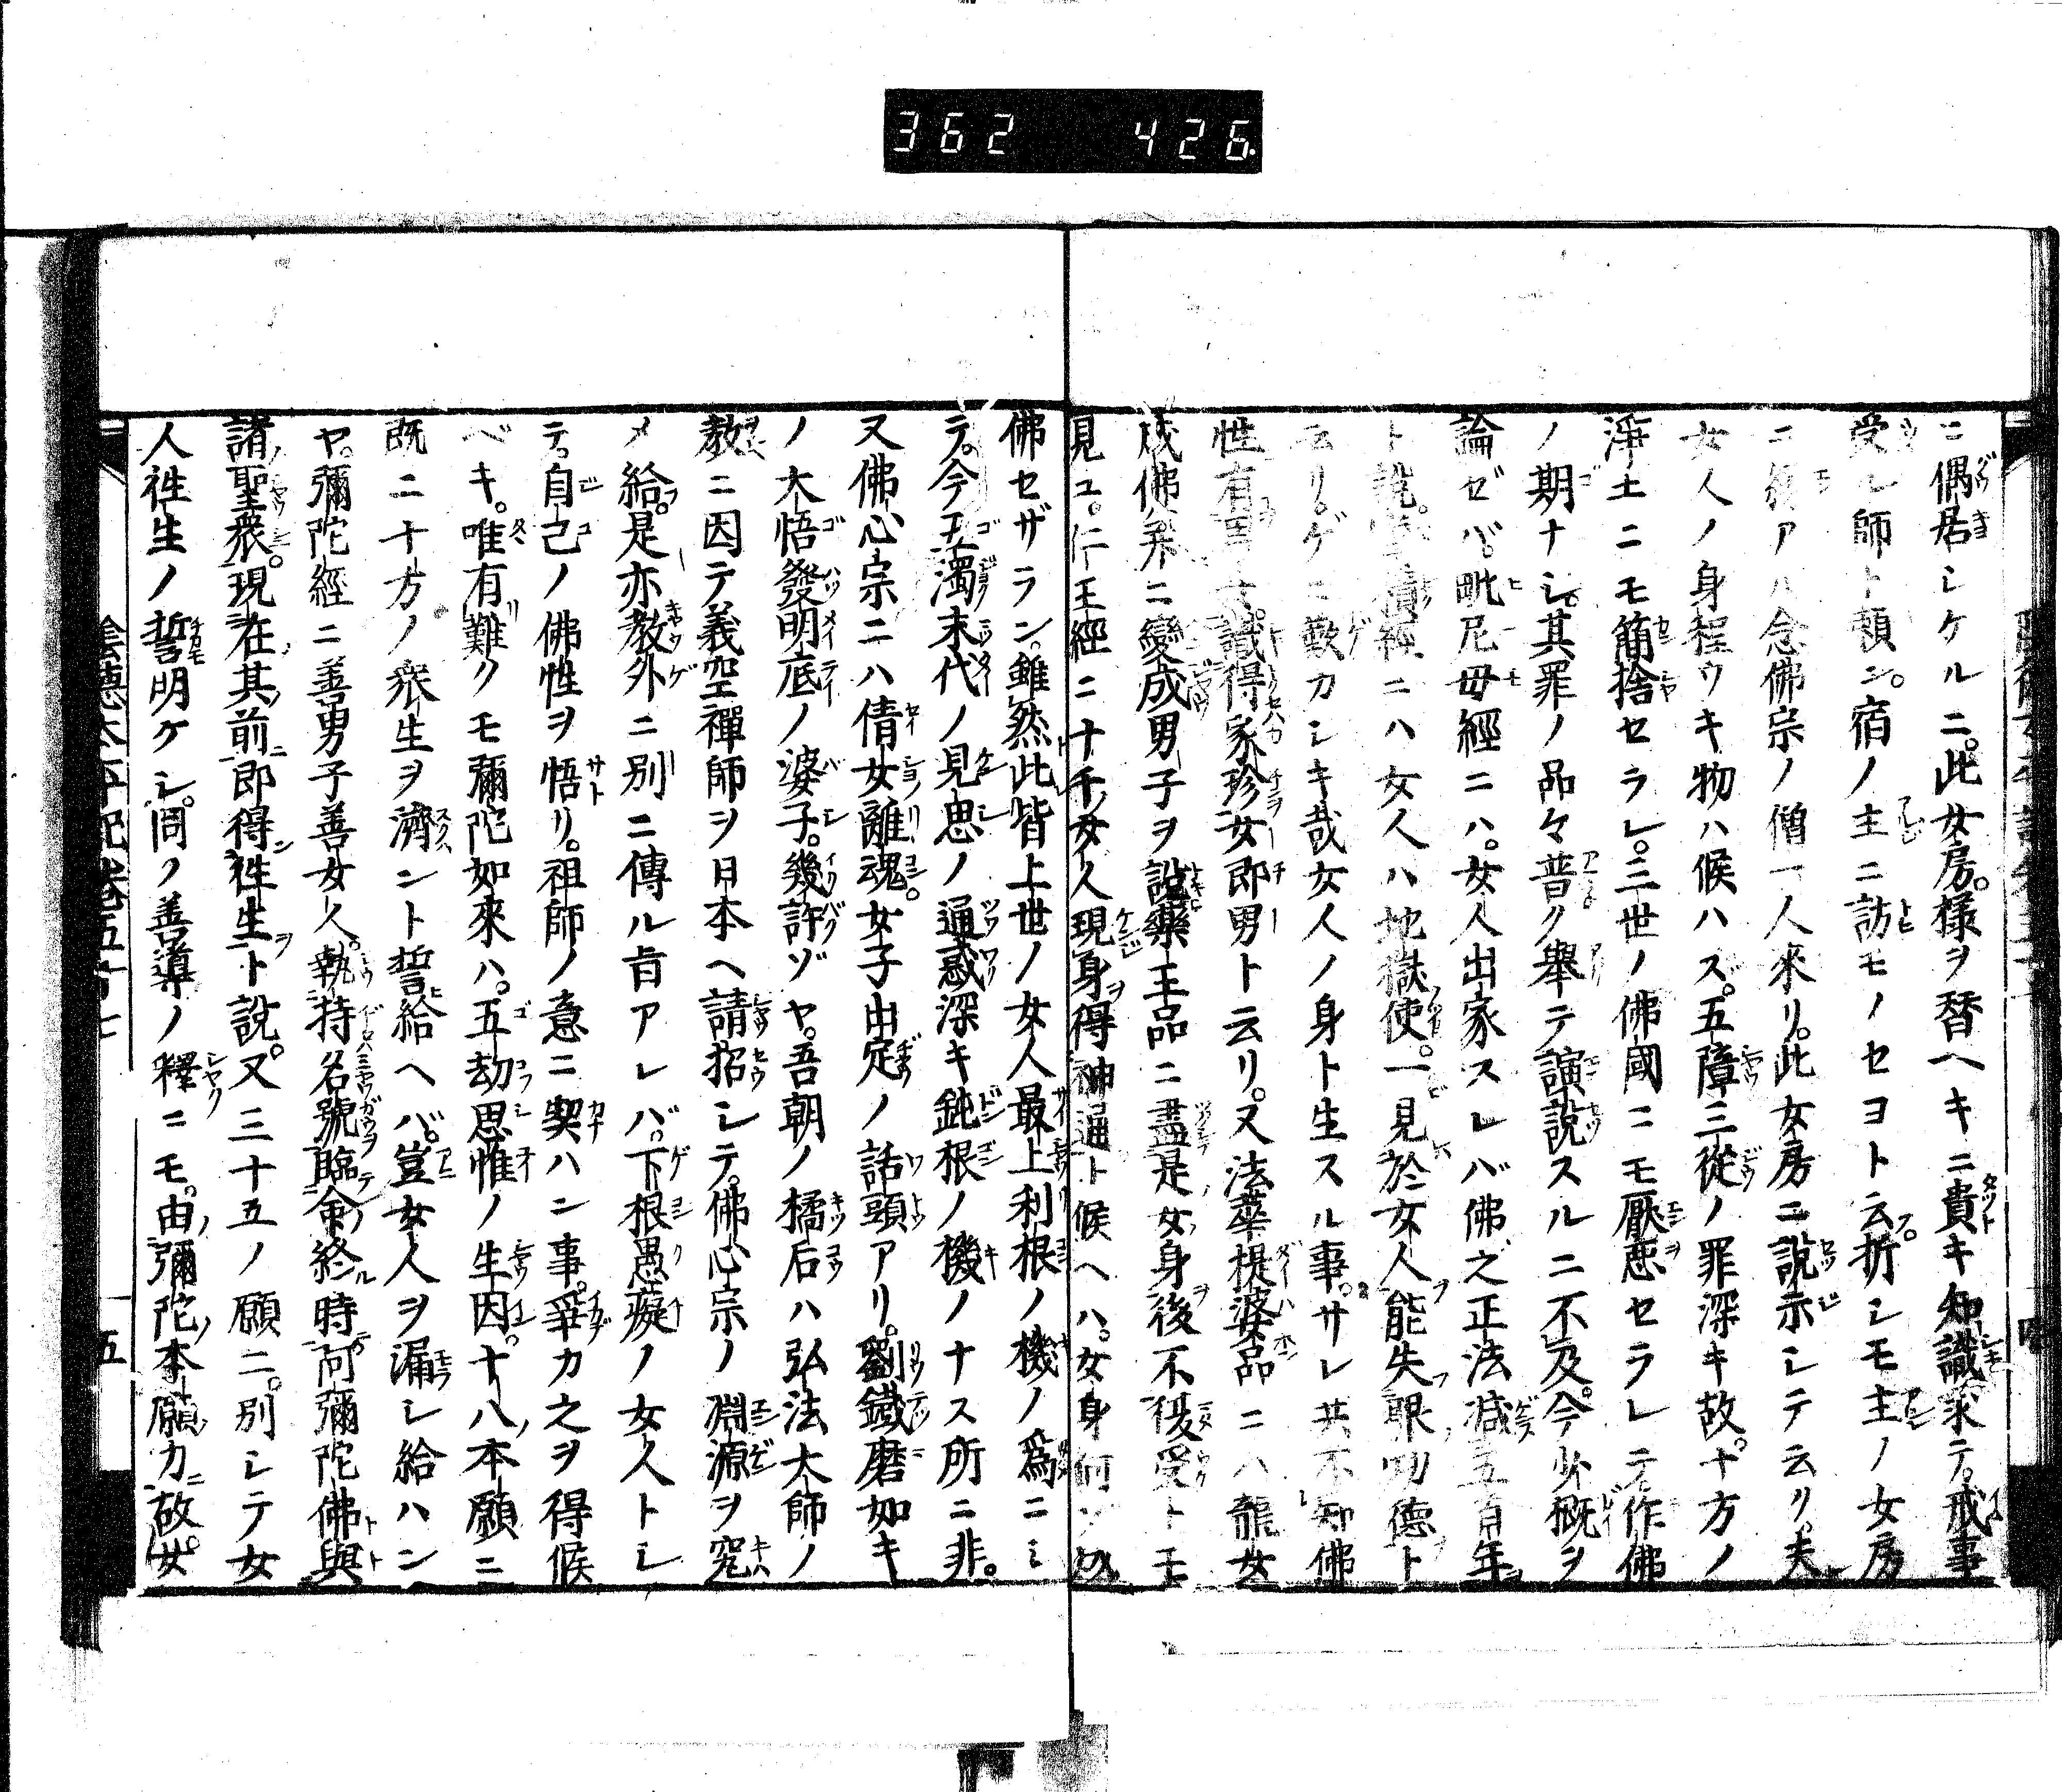 362 426
ニ偶居シケルニ此女房。様ヲ替ヘキニ貴キ知識求テ。戒事
受シ師ト頼ン。宿ノ主ニ訪モノセヨト云。折シモ主ノ女房
ニ アハ念佛宗ノ僧一人來リ。此女房ニ說示シテ云リ。夫
女人ノ身程ウキ物ハ候ハス。五障三從ノ罪深キ故。十方ノ
淨土ニモ簡捨セラレ。三世ノ佛國ニモ厭悪セラレテ作佛
ノ期ナシ。其罪ノ品々普ク舉テ演說スルニ不及。今少概ヲ
論ゼバ。毗尼母經ニハ。女人出家スレバ佛之正法減五百年
ト說。 經ニハ女人ハ地獄使。一見於女人能失眼功德ト
云リ。ゲニ歎カシキ哉女人ノ身ト生スル事。サレ共不知佛
性有 。識得家珍女即男ト云リ。又法華提婆品ニハ龍女
成佛 ニ變成男子ヲ說。藥王品ニ盡是女身後不復受トモ
見ユ。仁王經ニ十千女人現身得神通ト候ヘハ。女身何ソ成
佛セザラン。雖然此皆上世ノ女人最上利根ノ機ノ爲ニシ
テ。今五濁末代ノ見思ノ通惑深キ鈍根ノ機ノナス所ニ非。
又佛心宗ニハ倩女離魂。女子出定ノ話頭アリ。劉鐵磨如キ
ノ大悟發明底ノ婆子。幾許ゾヤ。吾朝ノ橘后ハ弘法大師ノ
教ニ因テ義空禪師ヲ日本ヘ請招シテ。佛心宗ノ淵源ヲ究
メ給。是亦教外ニ別ニ傳ル旨アレバ。下根愚癡ノ女人トシ
テ。自己ノ佛性ヲ悟リ。祖師ノ意ニ契ハン事。爭カ之ヲ得候
ベキ。唯有難クモ彌陀如來ハ。五劫思惟ノ生因。十八本願ニ
既ニ十方ノ衆生ヲ濟ント誓給ヘバ。豈女人ヲ漏シ給ハン
ヤ。彌陀經ニ善男子善女人。執持名號臨命終時阿彌陀佛與
諸聖衆。現在其前即得徃生ト說。又三十五ノ願ニ。別シテ女
人徃生ノ誓明ケシ。同ノ善導ノ釋ニモ。由彌陀本願力故。女
陰德太平記卷五十七 五